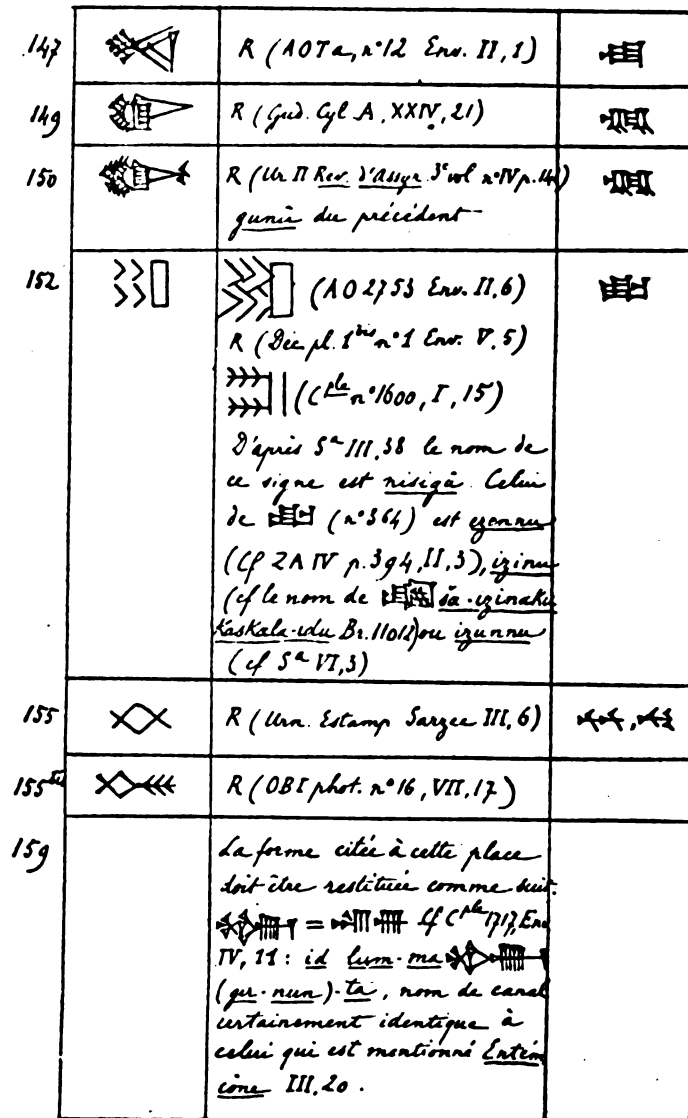 147 R (AOTa, n° 12 Env. II, 1)
149 R (Gud. Cyl. A, XXIV, 21)
150 R (Ur Π Rev. d'Assyr. 3e vol n° IV p. 14)
gunié du précédent
152 (AO 2753 Env. II, 6)
R (Déc pl. 1 bis n° 1 Env. V, 5)
(Cple n° 1600, I, 15)
D'après Sa III, 38 le nom de
ce signe est nisigâ. Celui
de (n° 364) est ezennu
(Cf ZA IV p. 394, II, 3), izinu
(cf le nom de ša-izinaku
Kaskala-idu Br. 11012) ou izunnu
(cf Sa VI, 3)
155 R (Urn. Estamp Sarzec III, 6) ,
155 R (OBI phot. n° 16, VII, 17)
159 La forme citée à cette place
doit être restituée comme suit:
= Cf Cple 1717, Env
IV, 11: id lum-ma
(gir-nun)-ta, nom de canal
certainement identique à
celui qui est mentionné Entém
cône III, 20.